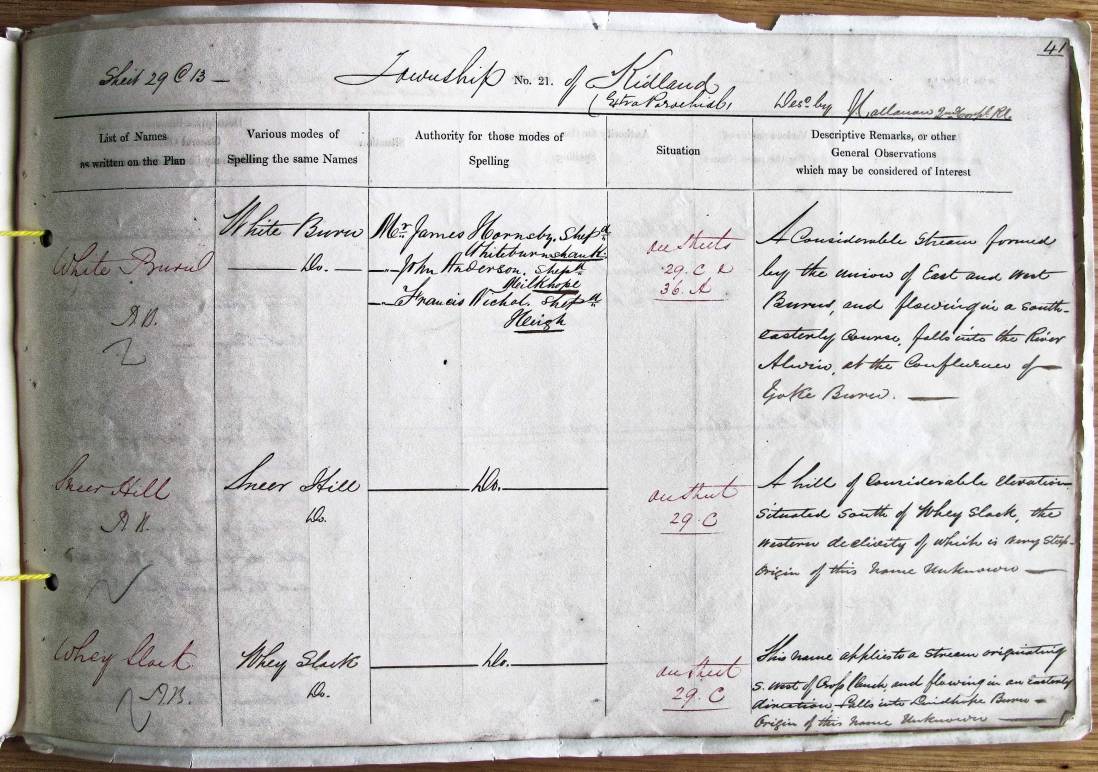 41
Sheet 29 C 13 —
Township No. 21. of Kidland
(Extra Parochial)
Desc. by
List of Names
as written on the Plan
Various modes of
Spelling the same Names
Authority for those modes of
Spelling
Situation
Descriptive Remarks, or other
General Observations
which may be considered of Interest
White Burn
R.B.
White Burn
Do.
Mr. James Hornsby, Shepd.
Whiteburnshank
John Anderson, Shepd.
Milkhope
Francis Nichol, Shepd.
Heigh
on Sheets
29. C &
36. A
A Considerable Stream formed
by the union of East and West
Burns, and flowing in a South-
easterly Course, falls into the River
Alwin, at the Confluence of
Yoke Burn.
Sneer Hill
R.B.
Sneer Hill
Do.
Do.
on Sheet
29. C
A hill of Considerable elevation
Situated South of Whey Slack, the
Western declivity of which is very steep.
Origin of this Name Unknown
Whey Slack
R.B.
Whey Slack
Do.
Do.
on Sheet
29. C
This name applies to a Stream originating
S. West of and flowing in an Easterly
direction falls into Burn
Origin of this Name Unknown